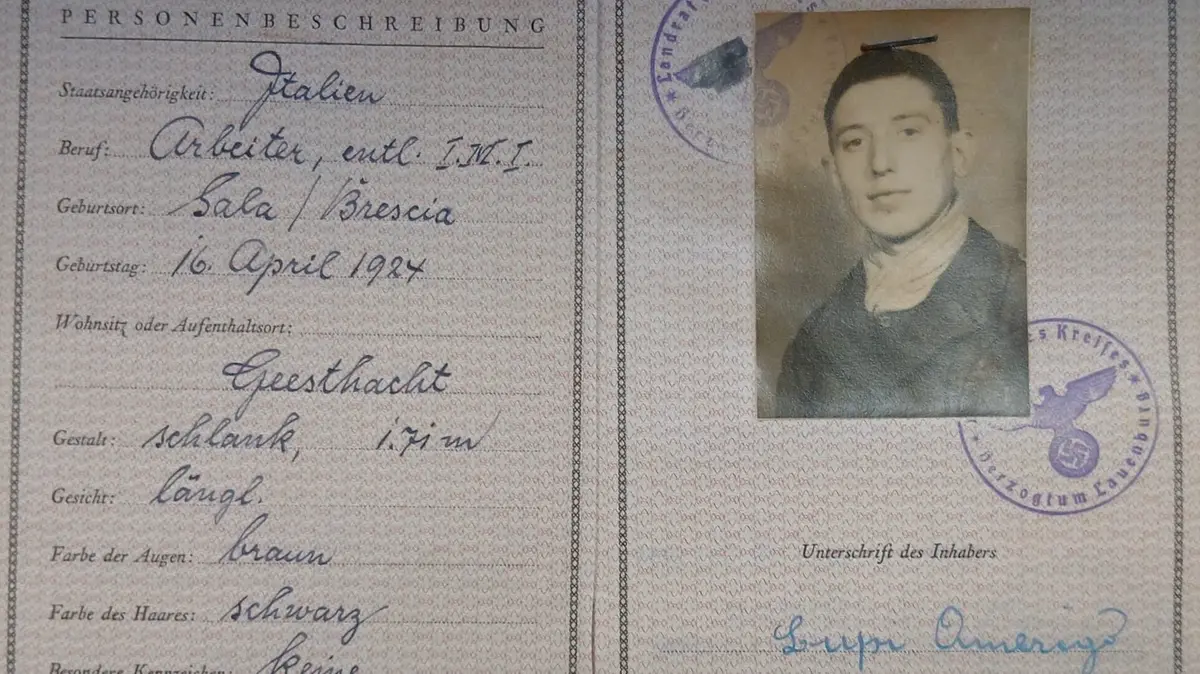 PERSONENBESCHREIBUNG
Staatsangehörigkeit: Italien
Beruf: Arbeiter, entl. I.M.I.
Geburtsort: Sala / Brescia
Geburtstag: 16. April 1924
Wohnsitz oder Aufenthaltsort:
Geesthacht
Gestalt: schlank, 1.71 m
Gesicht: längl.
Farbe der Augen: braun
Farbe des Haares: schwarz
Besondere Kennzeichen: keine
Landrat
Herz
es Kreises * Herzogtum Lauenburg *
Unterschrift des Inhabers
Lupi Amerigo